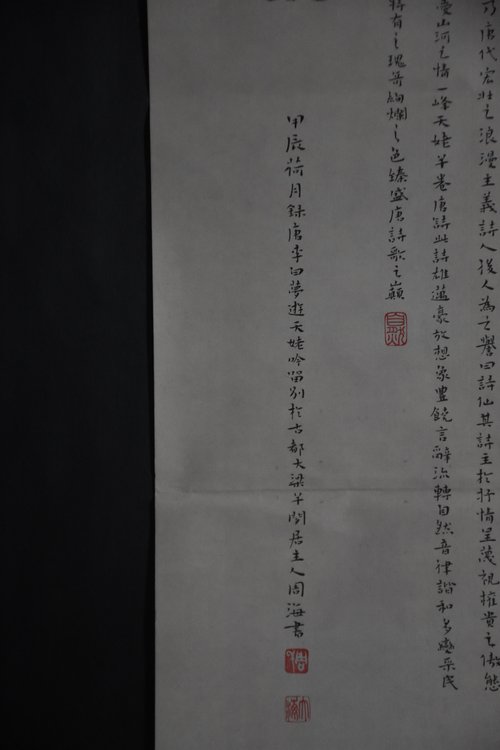 乃唐代宏壯之浪漫主義詩人後人為之譽曰詩仙其詩主於抒情呈蔑視權貴之傲態
愛山河之情一峰天姥半卷唐詩此詩雄邁豪放想象豐饒言辭流轉自然音律諧和多變采民
將有之瑰奇絢爛之色臻盛唐詩歌之巔
甲辰荷月録唐李白夢遊天姥吟留別於古都大梁半閒居主人周海書